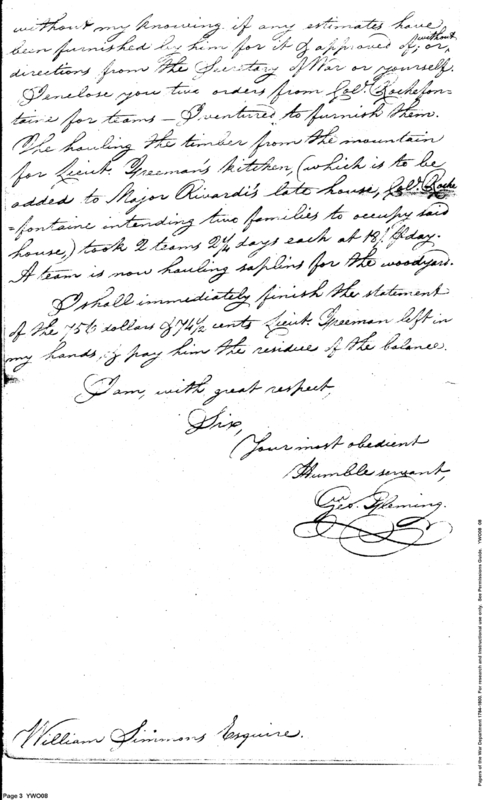 without my knowing if any estimates have
been furnished by him for it & approved of, or, without
directions from the Secretary of War or yourself.
I enclose you two orders from Col. Rochefon-
taine for teams — I ventured to furnish them.
The hauling the timber from the mountain
for Lieut. Freeman's kitchen, (which is to be
added to Major Rivardi's late house, Col. Roche
=fontaine intending two families to occupy said
house,) took 2 teams 2¼ days each at 18/ ⅌ day.
A team is now hauling saplins for the woodyard.
I shall immediately finish the statement
of the 756 dollars & 74½ cents Lieut. Freeman left in
my hands, & pay him the residue of the balance.
I am, with great respect,
Sir,
Your most obedient
Humble servant,
Geo. Fleming.
William Simmons Esquire.
Page 3 YWO08
Papers of the War Department 1784-1800. For research and instructional use only. See Permissions Guide. YWO08 08